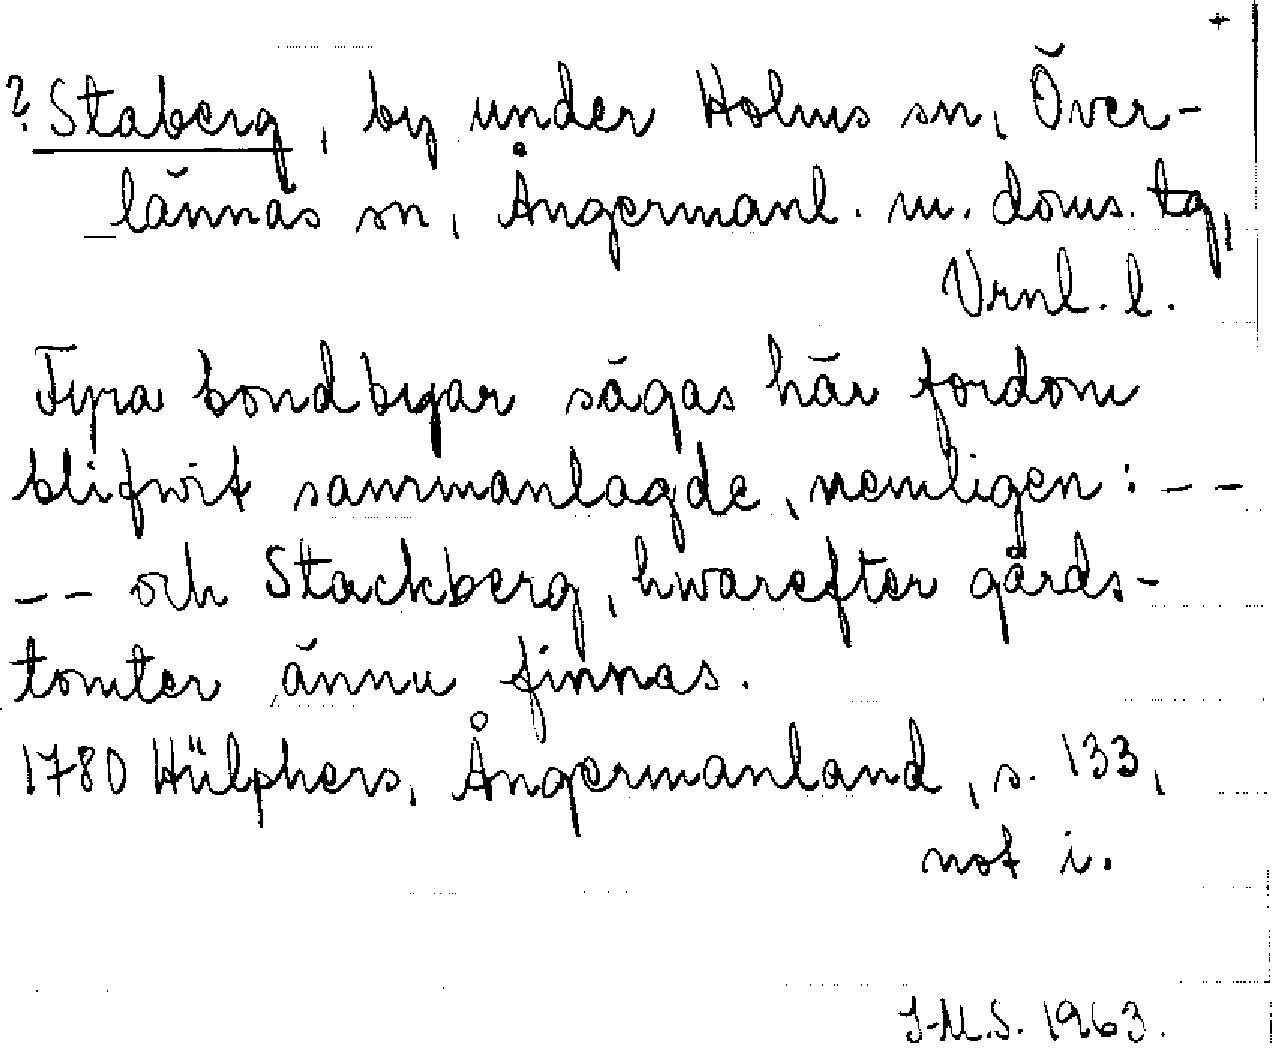 +
? Staberg, by under Holms sn, Över-
lännäs sn, Ångermanl. m. doms. tg,
Vrnl. l.
Fyra bondbyar sägas här fordom
blifwit sammanlagde, nemligen: --
-- och Stackberg, hwarefter gårds-
tomter ännu finnas.
1780 Hülphers, Ångermanland, s. 133,
not i.
J-M.S. 1963.